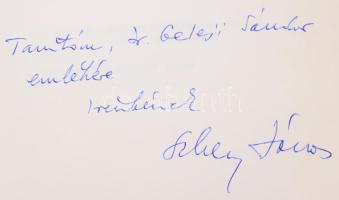 Tanítóm, dr. Geleji Sándor
emlékére
Irénkének
János